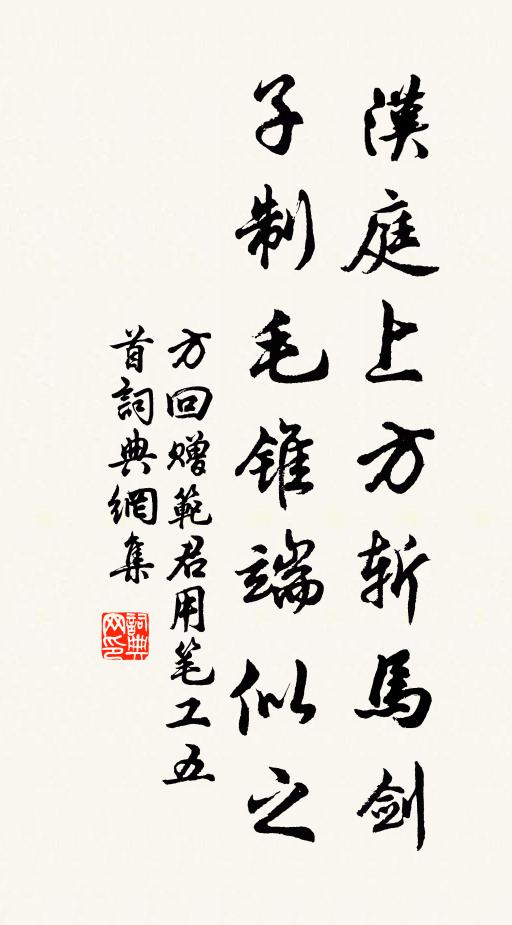 漢庭上方斬馬劍
子制毛錐端似之
方回赠範君用笔工五
首詞典網集
詞典
网印